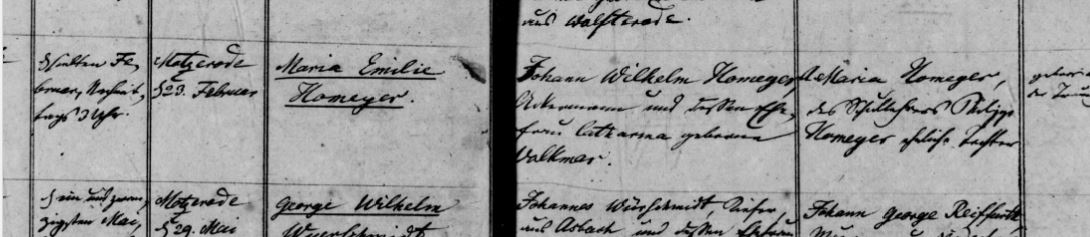 aus Wolfterode.
Achten Fe,
bruar, Nachmit,
tags 3 Uhr.
Motzerode
d. 23. Februar
Maria Emilie
Homeyer.
Johann Wilhelm Homeyer,
Ackermann und dessen Ehe,
frau Catharina geborene
Volkmar.
Maria Homeyer,
des Schullehrers Philipp
Homeyer eheliche Tochter
Ein und zwan,
zigsten Mai,
Motzerode
d. 29. Mai
George Wilhelm
Johannes
aus Asbach und dessen Ehefrau
Johann George Reiffurth